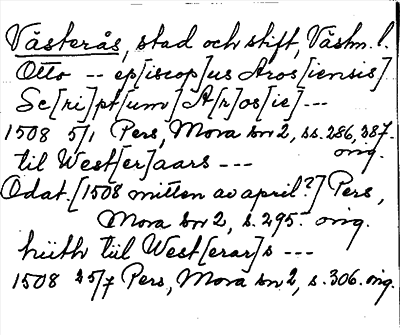 Västerås, stad och stift, Västm. l.
Otto -- ep[iscop]us Aros[iensis]
Sc[ri]pt[um] A[r]os[ie] ---
1508 5/1 Pers, Mora bn 2, ss. 286, 387.
orig.
til West[er]aars ---
Odat. [1508 mitten av april?] Pers,
Mora bn 2, s. 295. orig.
hiith till West[erar]s ---
1508 25/7 Pers, Mora bn 2, s. 306. orig.